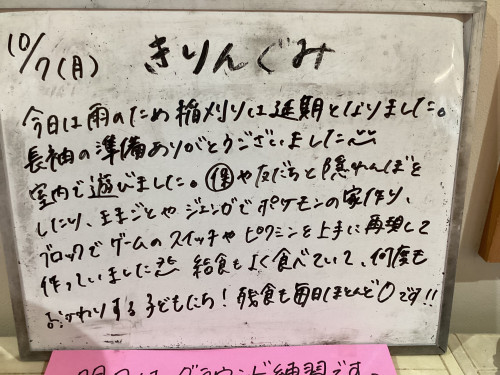 10/7(月)
きりんぐみ
今日は雨のため稲刈りは延期となりました。
長袖の準備ありがとうございました
室内で遊びました。保や友だちと隠れんぼを
したり、ままごとや ジェンガで ポケモンの家作り、
ブロックで ゲームの スイッチや ピクミンを上手に 再現して
作っていました 給食もよく食べていて、何度も
おかわりする子どもたち! 残食も毎日ほとんど0です!!
明日は、グラウンド練習です。